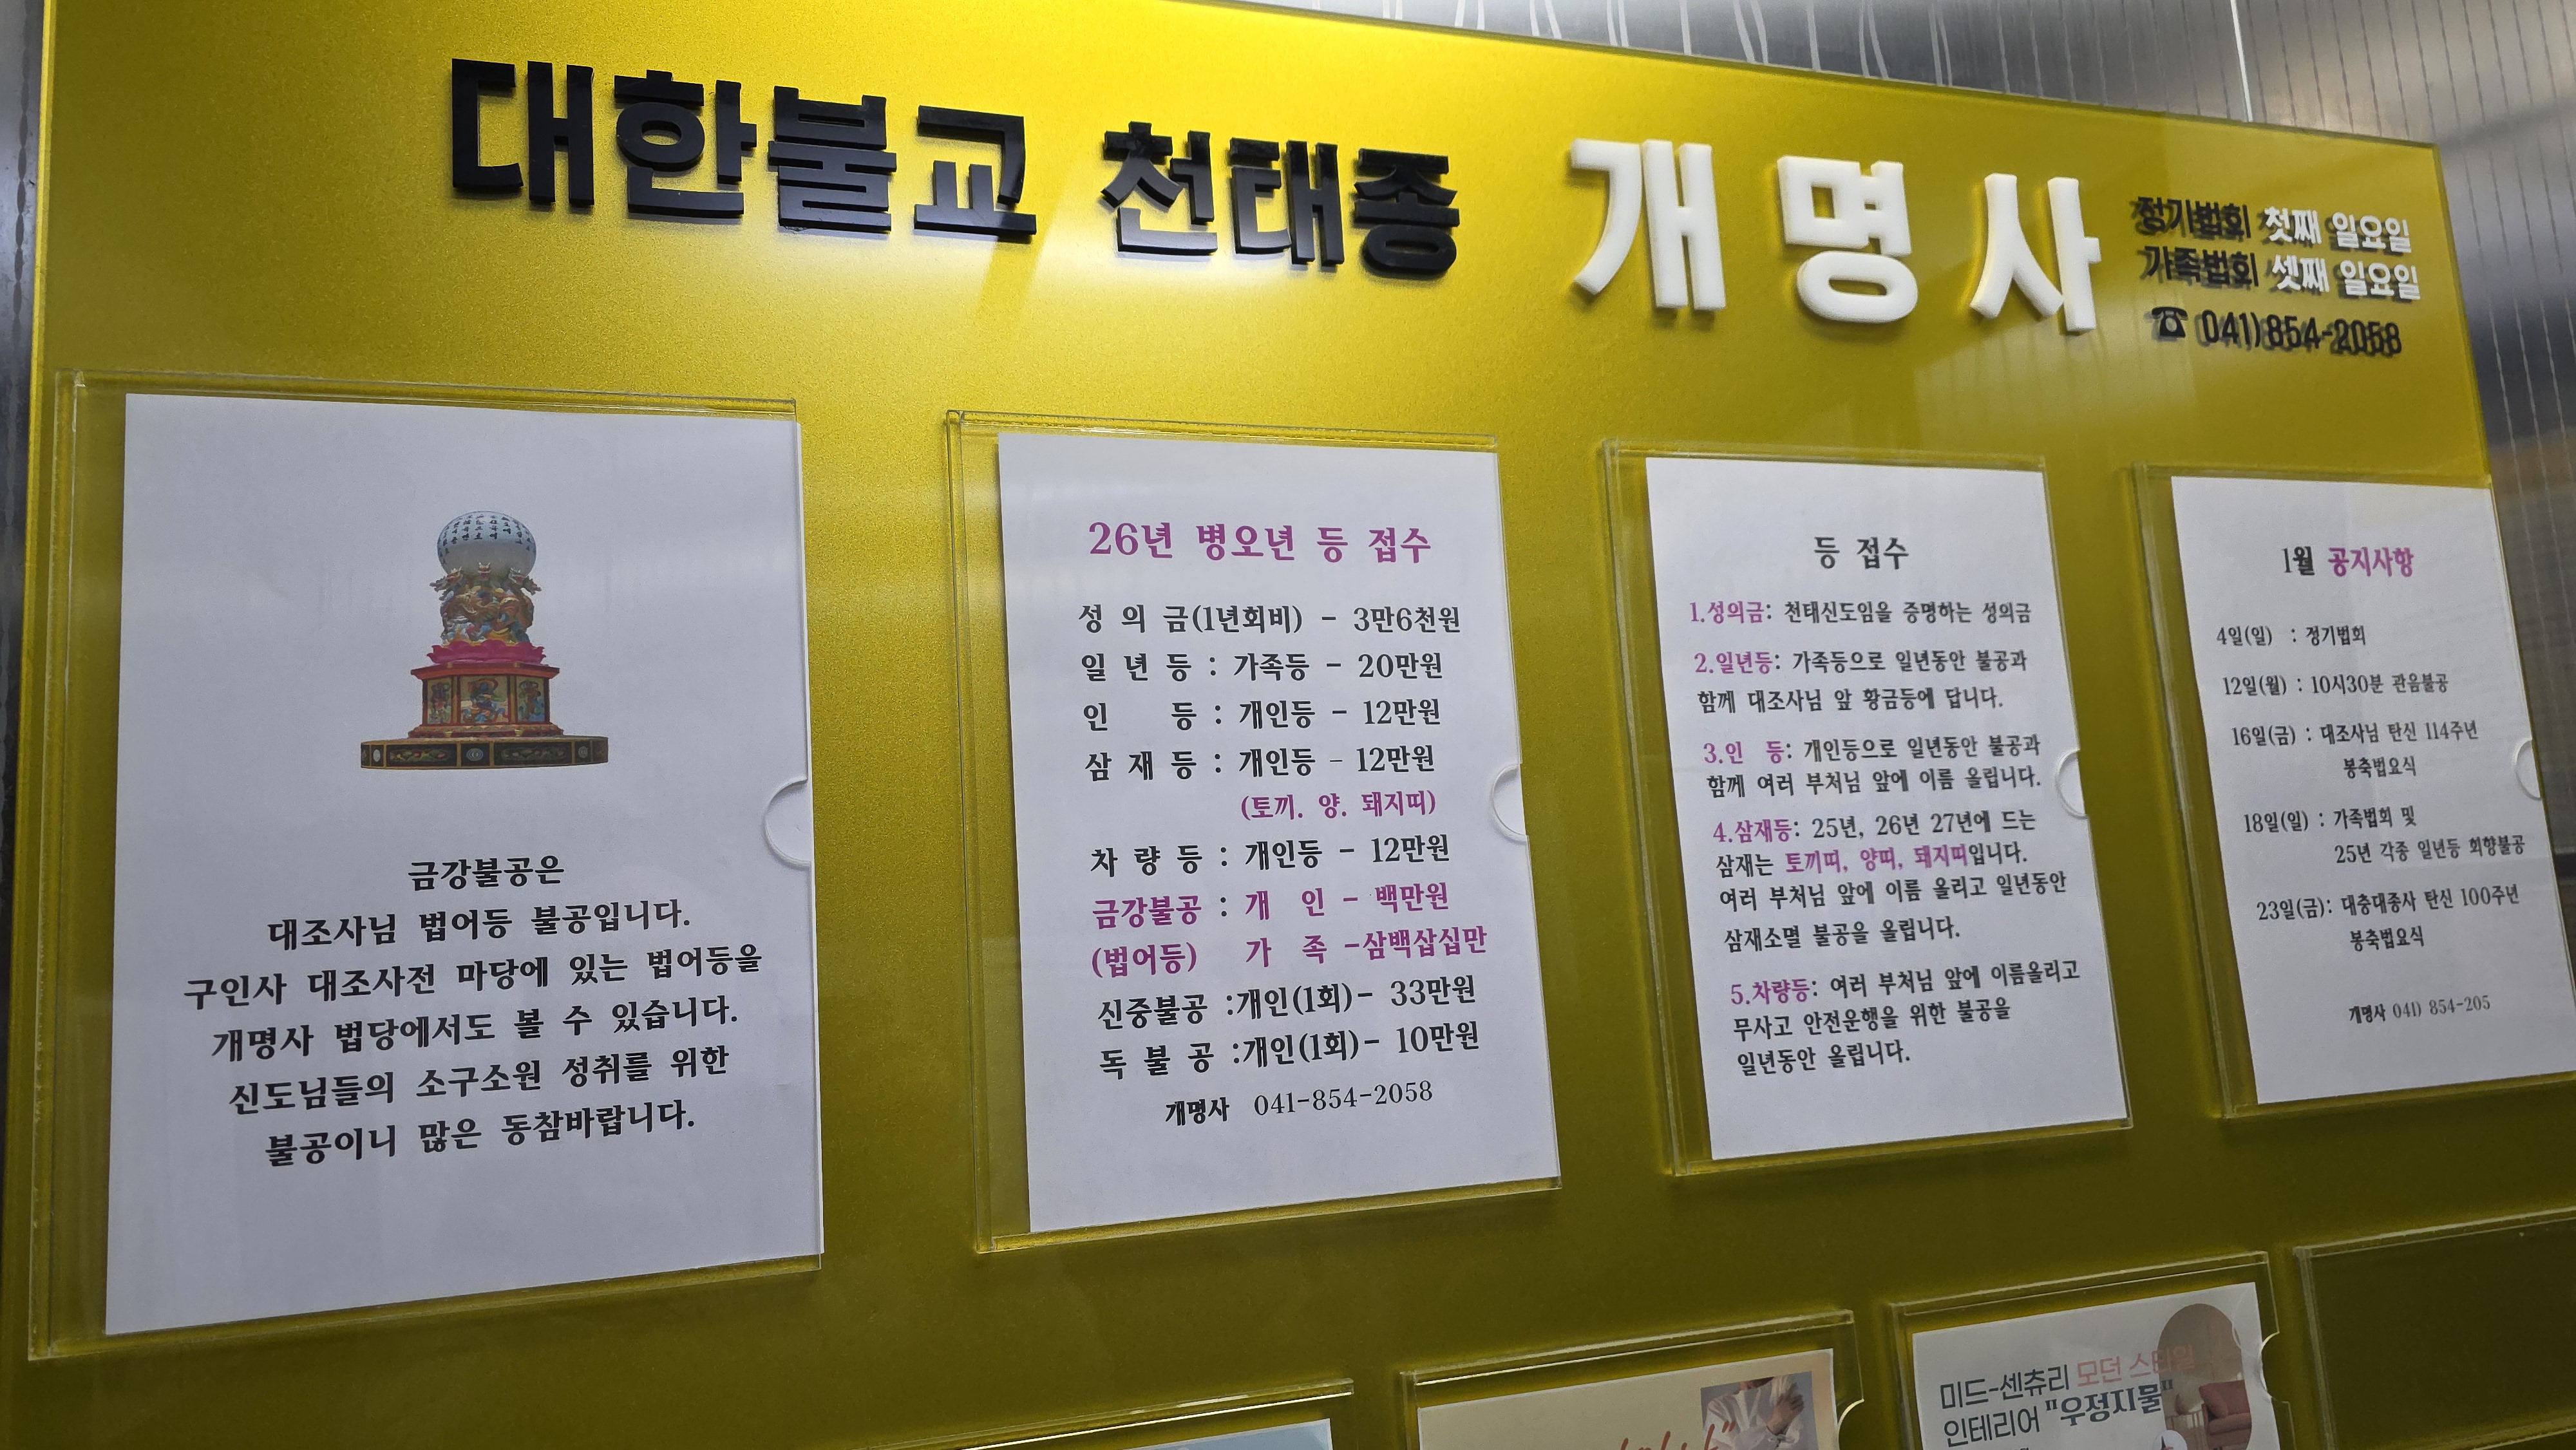 대한불교 천태종 개명사
정기법회 첫째 일요일
가족법회 셋째 일요일
☎ 041)854-2058
금강불공은
대조사님 법어등 불공입니다.
구인사 대조사전 마당에 있는 법어등을
개명사 법당에서도 볼 수 있습니다.
신도님들의 소구소원 성취를 위한
불공이니 많은 동참바랍니다.
26년 병오년 등 접수
성 의 금(1년회비) - 3만6천원
일 년 등 : 가족등 - 20만원
인 등 : 개인등 - 12만원
삼 재 등 : 개인등 - 12만원
(토끼. 양. 돼지띠)
차 량 등 : 개인등 - 12만원
금강불공 : 개 인 - 백만원
(법어등) 가 족 -삼백삽십만
신중불공 :개인(1회)- 33만원
독 불 공 :개인(1회)- 10만원
개명사 041-854-2058
등 접수
1.성의금: 천태신도임을 증명하는 성의금
2.일년등: 가족등으로 일년동안 불공과
함께 대조사님 앞 황금등에 답니다.
3.인 등: 개인등으로 일년동안 불공과
함께 여러 부처님 앞에 이름 올립니다.
4.삼재등: 25년, 26년 27년에 드는
삼재는 토끼띠, 양띠, 돼지띠입니다.
여러 부처님 앞에 이름 올리고 일년동안
삼재소멸 불공을 올립니다.
5.차량등: 여러 부처님 앞에 이름올리고
무사고 안전운행을 위한 불공을
일년동안 올립니다.
1월 공지사항
4일(일) : 정기법회
12일(월) : 10시30분 관음불공
16일(금) : 대조사님 탄신 114주년
봉축법요식
18일(일) : 가족법회 및
25년 각종 일년등 회향불공
23일(금): 대충대종사 탄신 100주년
봉축법요식
개명사 041) 854-205
미드-센츄리 모던 스타일
인테리어 "우정지물"